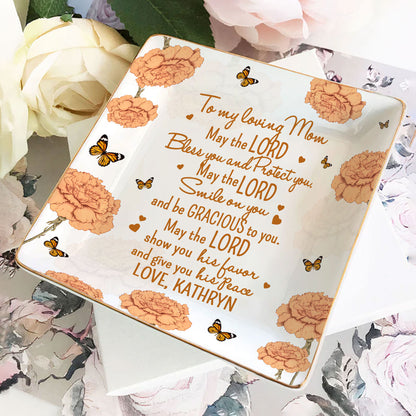 To my loving Mom
May the LORD
Bless you and Protect you.
May the LORD
Smile on you
and be GRACIOUS to you.
May the LORD
show you his favor
and give you his Peace
LOVE, KATHRYN